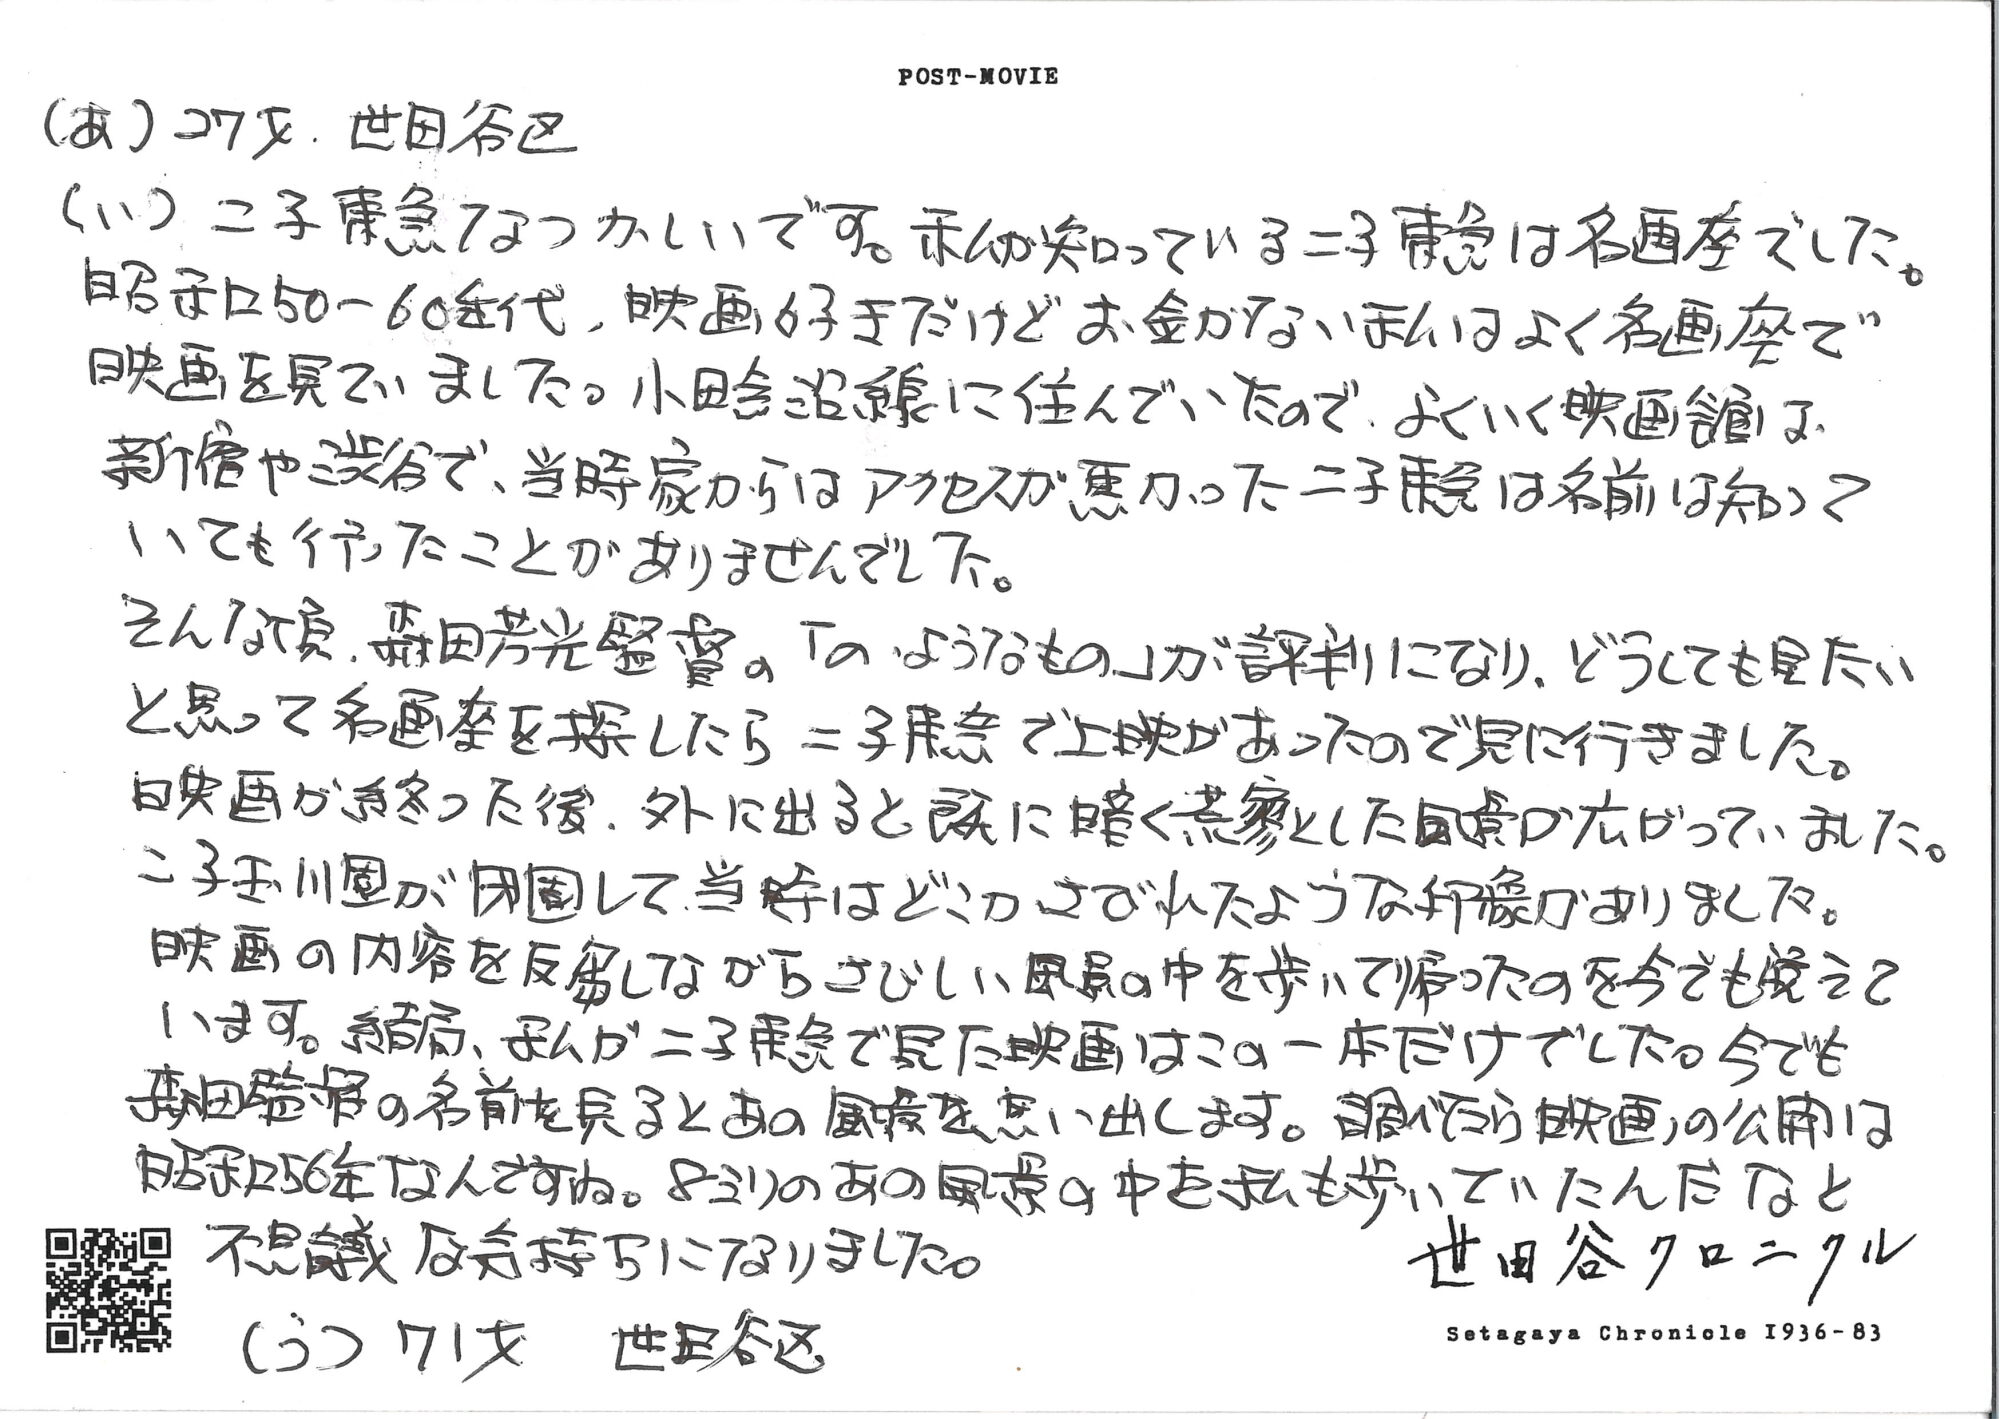 POST-MOVIE
(あ) 27才. 世田谷区
(い) 二子東急なつかしいです。私が知っている二子東急は名画座でした。
昭和50-60年代、映画好きだけどお金がない私はよく名画座で
映画を見ていました。小田急沿線に住んでいたので、よくいく映画館は
新宿や渋谷で、当時家からはアクセスが悪かった二子東急は名前は知って
いても行ったことがありませんでした。
そんな頃、森田芳光監督の「の・ようなもの」が評判になり、どうしても見たい
と思って名画座を探したら二子東急で上映があったので見に行きました。
映画が終った後、外に出ると既に暗く荒寥とした風景が広がっていました。
二子玉川園が閉園して、当時はどこかさびれたような印象がありました。
映画の内容を反芻しながらさびしい風景の中を歩いて帰ったのを今でも覚えて
います。結局、私が二子東急で見た映画はこの一本だけでした。今でも
森田監督の名前を見るとあの風景を思い出します。調べたら映画の公開は
昭和56年なんですね。8ミリのあの風景の中を私も歩いていたんだなと
不思議な気持ちになりました。
(う) 71才 世田谷区
世田谷クロニクル
Setagaya Chronicle 1936-83